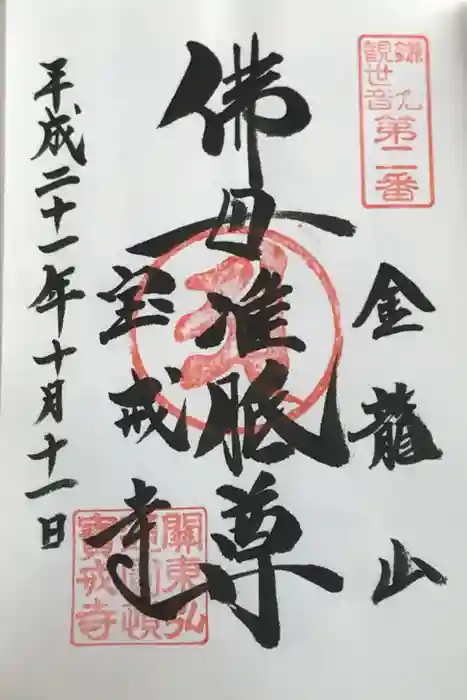 鎌九
観世音
第二番
金龍山
佛母准胝尊
宝戒寺
平成二十一年十月十一日
關東弘
寶戒寺